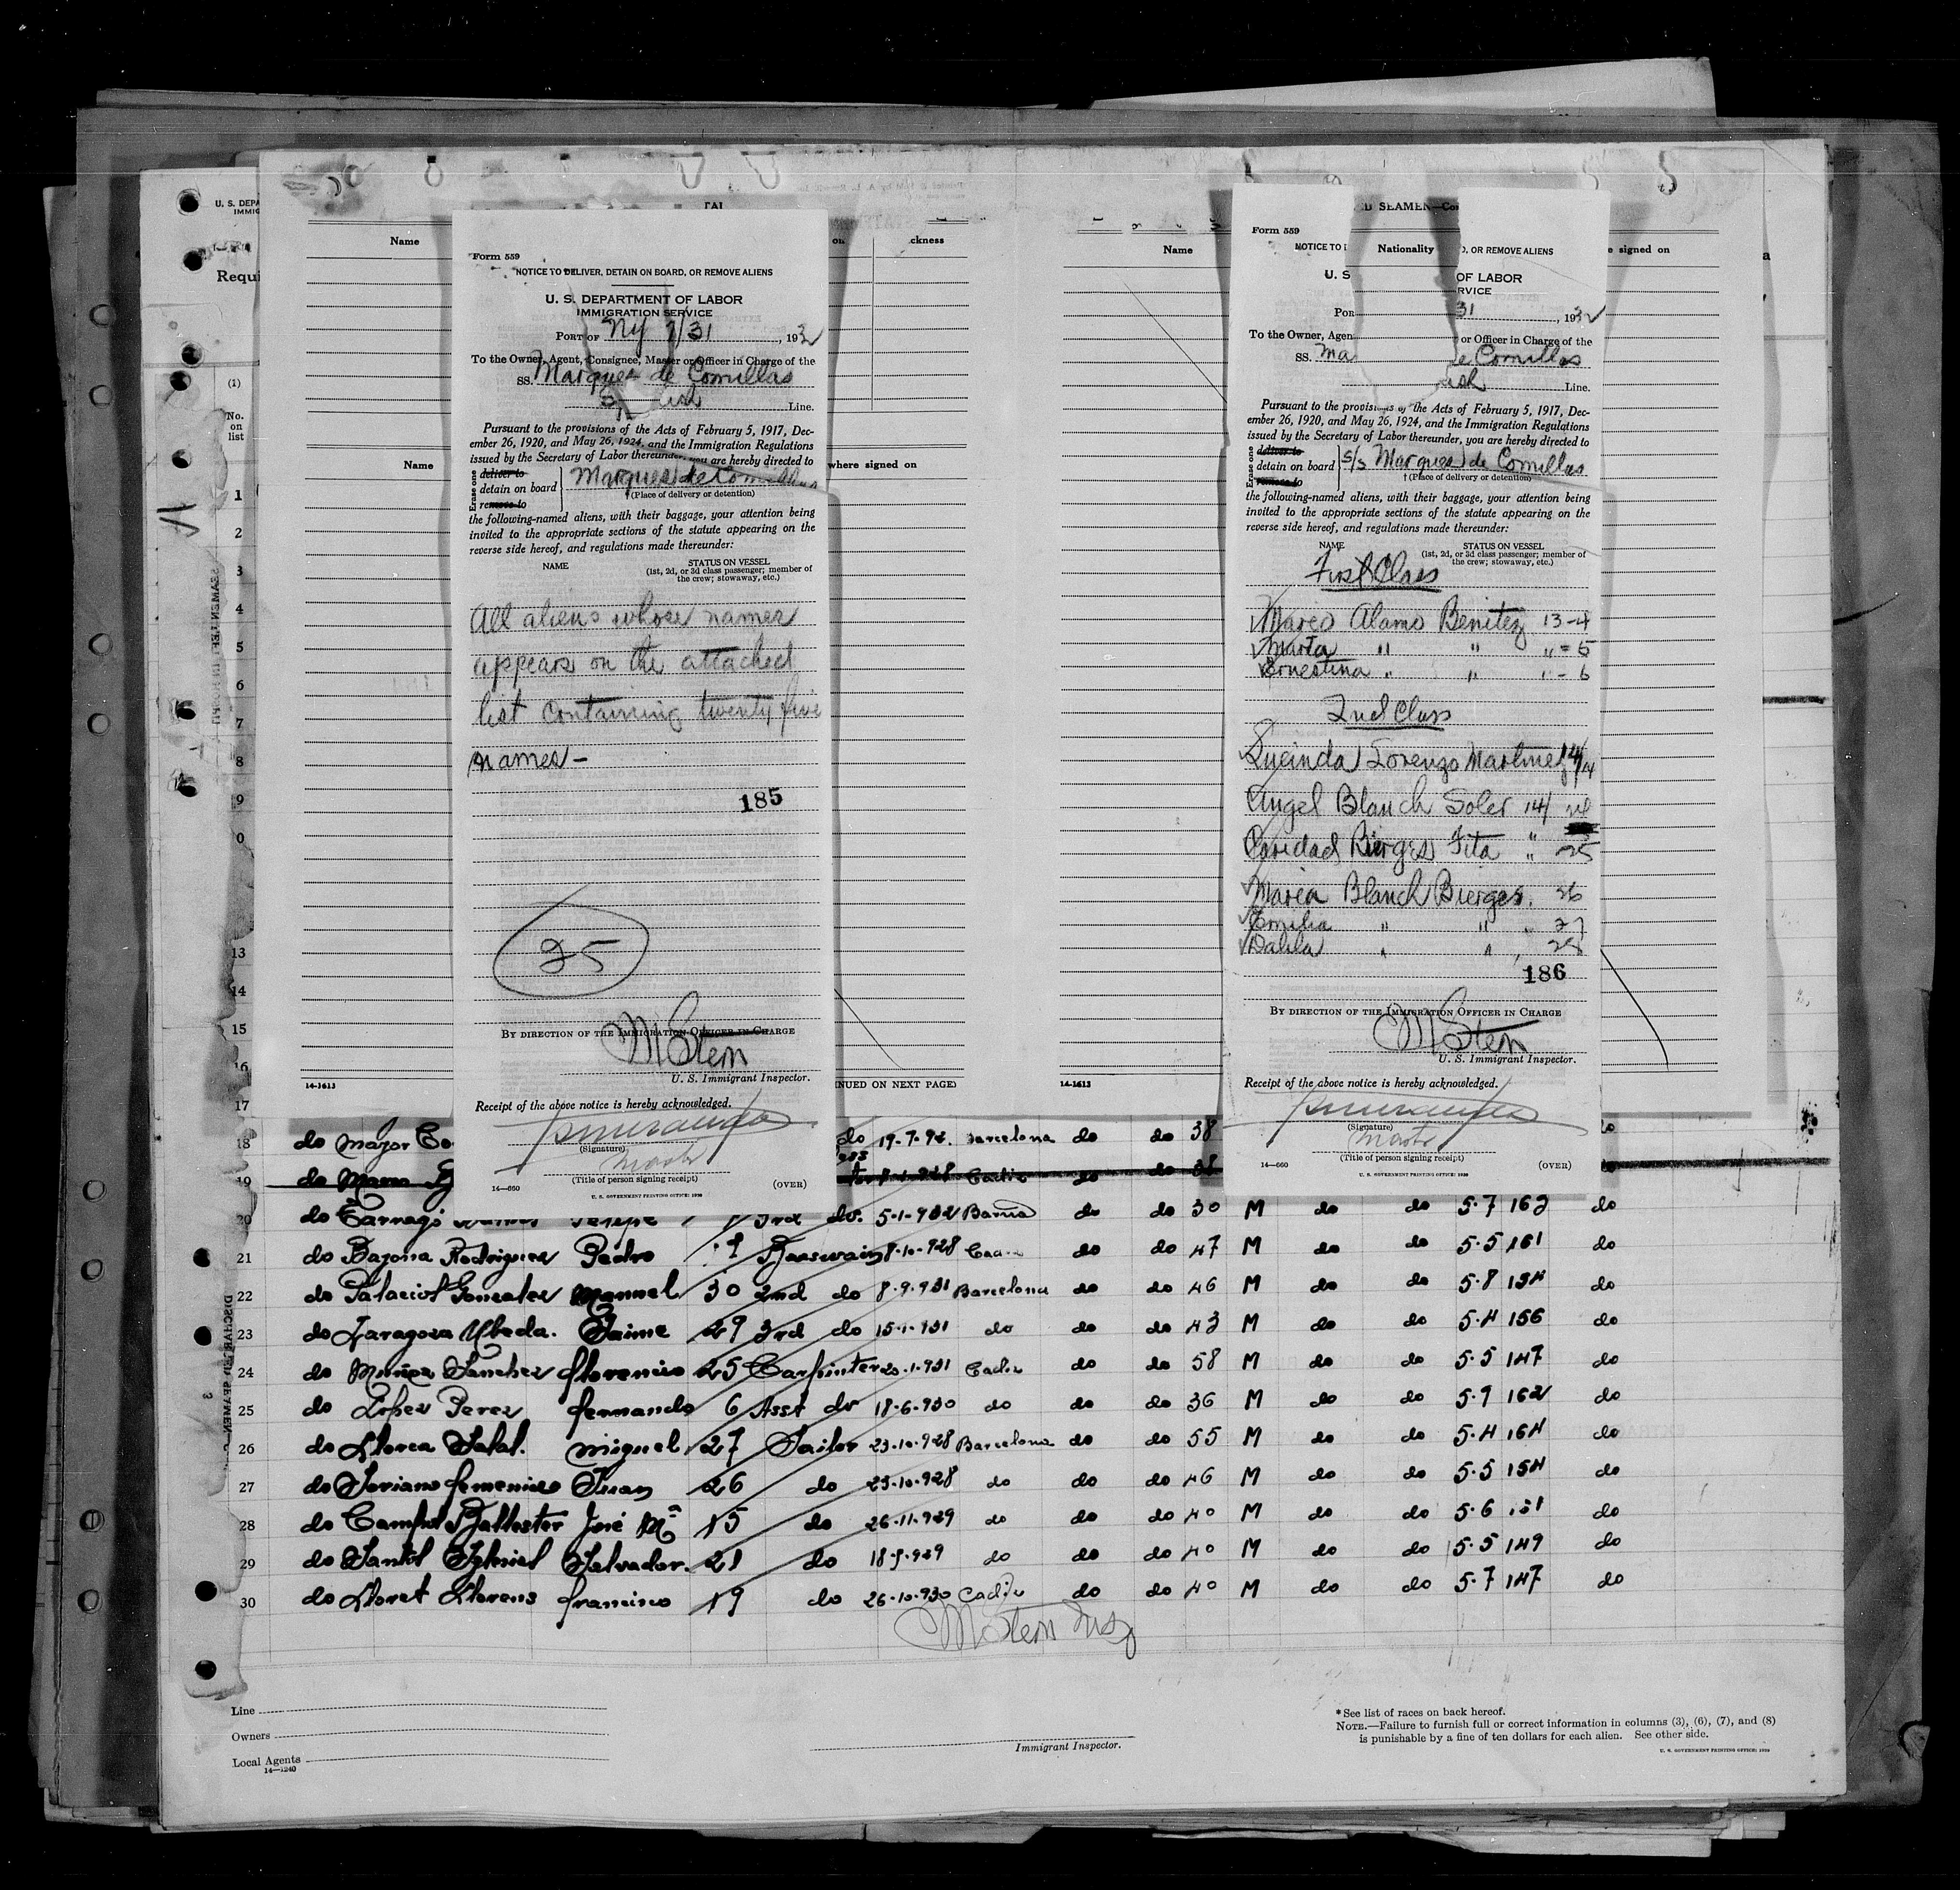 U. S. DEPA
IMMIG
Requi
(1)
No.
on
list
Name
ckness
Name
where signed on
14-1613
NUED ON NEXT PAGE)
Form 559
NOTICE TO DELIVER, DETAIN ON BOARD, OR REMOVE ALIENS
U. S. DEPARTMENT OF LABOR
IMMIGRATION SERVICE
PORT OF NY 1/31, 1932
To the Owner, Agent, Consignee, Master or Officer in Charge of the
SS. Marques de Comillas
Line.
Pursuant to the provisions of the Acts of February 5, 1917, Dec-
ember 26, 1920, and May 26, 1924, and the Immigration Regulations
issued by the Secretary of Labor thereunder, you are hereby directed to
Erase one
deliver to
detain on board
remove to
Marques de Comillas
(Place of delivery or detention)
the following-named aliens, with their baggage, your attention being
invited to the appropriate sections of the statute appearing on the
reverse side hereof, and regulations made thereunder:
NAME
STATUS ON VESSEL
(1st, 2d, or 3d class passenger; member of
the crew; stowaway, etc.)
All aliens whose names
appears on the attached
list containing twenty five
names -
185
25
BY DIRECTION OF THE IMMIGRATION OFFICER IN CHARGE
M Stern
U. S. Immigrant Inspector.
Receipt of the above notice is hereby acknowledged.
(Signature)
Master
(Title of person signing receipt)
14—660
(OVER)
U. S. GOVERNMENT PRINTING OFFICE: 1930
Name
D SEAMEN—Con
Nationality
e signed on
14-1613
Form 559
NOTICE TO D, OR REMOVE ALIENS
U. S OF LABOR
RVICE
Por 31, 1932
To the Owner, Agen or Officer in Charge of the
SS. Ma de Comillas
ish Line.
Pursuant to the provisions of the Acts of February 5, 1917, Dec-
ember 26, 1920, and May 26, 1924, and the Immigration Regulations
issued by the Secretary of Labor thereunder, you are hereby directed to
Erase one
deliver to
detain on board
remove to
S/S Marques de Comillas
† (Place of delivery or detention)
the following-named aliens, with their baggage, your attention being
invited to the appropriate sections of the statute appearing on the
reverse side hereof, and regulations made thereunder:
NAME
STATUS ON VESSEL
(1st, 2d, or 3d class passenger; member of
the crew; stowaway, etc.)
First Class
Marco Alamo Benitez 13-4
Marta " " " = 5
Ernestina " " " - 6
2nd Class
Lucinda Lorenzo Martinez 14/14
Angel Blanch Soler 14/ 24
Caridad Bierges Fita " 25
Maria Blanch Bierges " 26
Emilia " " " 27
Dalila " " " 28
186
BY DIRECTION OF THE IMMIGRATION OFFICER IN CHARGE
M Stern
U. S. Immigrant Inspector.
Receipt of the above notice is hereby acknowledged.
(Signature)
Master
(Title of person signing receipt)
14—660
(OVER)
U. S. GOVERNMENT PRINTING OFFICE: 1930
1
2
3
4
5
6
7
8
9
0
13
14
15
16
17
18 do Mayor Co do 19-7-92. Barcelona do do 38
19 do Cadiz do do 38
20 do Tarragó Felipe 3rd do. 5-1-932 Barna do do 30 M do do 5.7 162 do
21 do Bazona Rodriguez Pedro Boaswain 8-10-928 Cadiz do do 47 M do do 5.5 161 do
22 do Palaciol Gonzalez Manuel 30 2nd do 8-9-931 Barcelona do do 46 M do do 5.8 154 do
23 do Zaragoza Ybeda. Jaime 29 3rd do 15-1-931 do do do 43 M do do 5.4 156 do
24 do Muñoz Sanchez Florencio 25 Carpinter 20-1-931 Cadiz do do 58 M do do 5.5 147 do
25 do Lopez Perez Fernando 6 Asst do 18-6-930 do do do 36 M do do 5.7 162 do
26 do Llorca Salal. Miguel 27 Sailor 23-10-928 Barcelona do do 55 M do do 5.4 164 do
27 do Soriano Femenias Juan 26 do 23-10-928 do do do 46 M do do 5.5 154 do
28 do Campol Ballester José Mª 15 do 26-11-929 do do do 40 M do do 5.6 151 do
29 do Santol Salvador. 21 do 18-5-929 do do do 40 M do do 5.5 149 do
30 do Lloret Llorens Francisco 19 do 26-10-930 Cadiz do do 40 M do do 5.7 147 do
M Stern Insp
Line
Owners
Local Agents
14—1240
Immigrant Inspector.
* See list of races on back hereof.
NOTE.—Failure to furnish full or correct information in columns (3), (6), (7), and (8)
is punishable by a fine of ten dollars for each alien. See other side.
U. S. GOVERNMENT PRINTING OFFICE: 1929